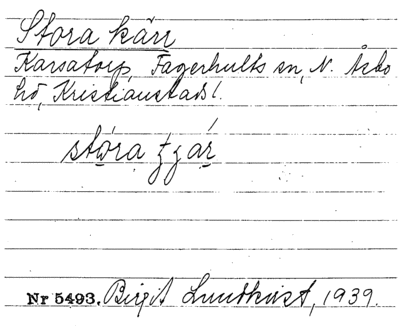 Stora kärr
Karsatorp, Fagerhults sn, N. Åsbo
hd, Kristianstads l.
stora tjár
Nr 5493. Birgit Lundkvist, 1939.